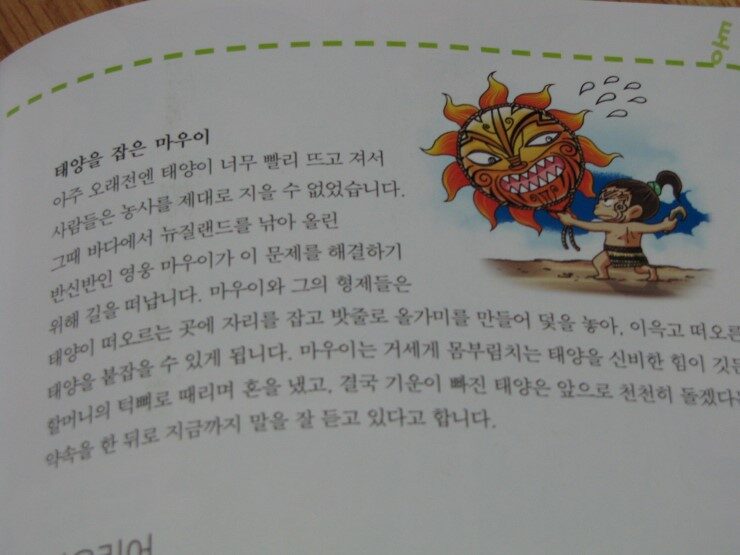 태양을 잡은 마우이
아주 오래전엔 태양이 너무 빨리 뜨고 져서
사람들은 농사를 제대로 지을 수 없었습니다.
그때 바다에서 뉴질랜드를 낚아 올린
반신반인 영웅 마우이가 이 문제를 해결하기
위해 길을 떠납니다. 마우이와 그의 형제들은
태양이 떠오르는 곳에 자리를 잡고 밧줄로 올가미를 만들어 덫을 놓아, 이윽고 떠오른
태양을 붙잡을 수 있게 됩니다. 마우이는 거세게 몸부림치는 태양을 신비한 힘이 깃든
할머니의 턱뼈로 때리며 혼을 냈고, 결국 기운이 빠진 태양은 앞으로 천천히 돌겠다는
약속을 한 뒤로 지금까지 말을 잘 듣고 있다고 합니다.